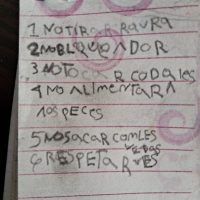 1 NO TIRAR BAURA
2 NO BLOQUEADOR
3 NO TOCAR CORALES
4 NO ALIMENTAR A
LOS PECES
5 NO SACAR COMLES
6 RESPETAR